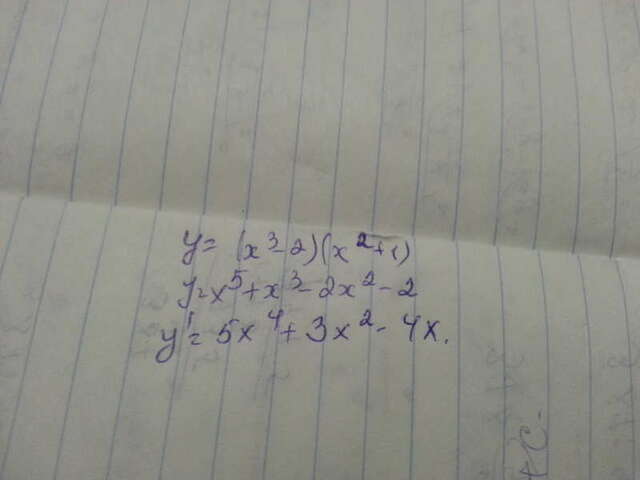 y = (x³-2)(x²+1)
y=x⁵+x³-2x²-2
y'=5x⁴+3x²-4x.